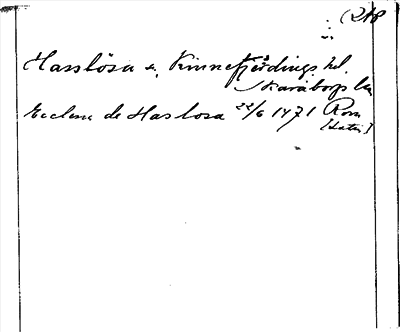 (248
Hasslösa s. Kinnefjärdings hd.
Skaraborgs län
Ecclesia de Haslosa 22/6 1471 Rom